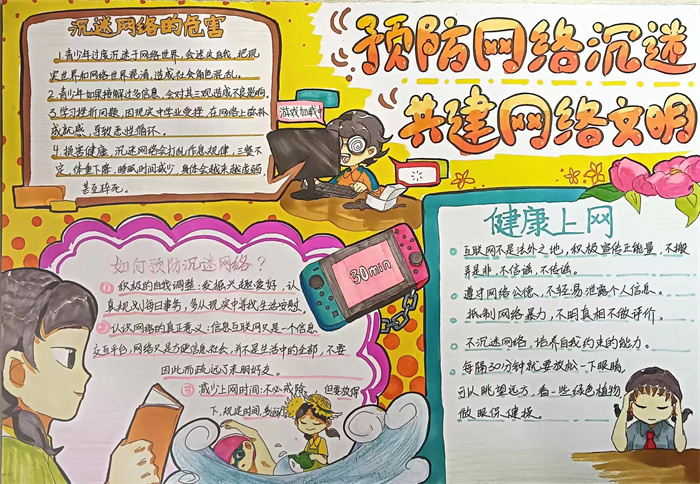 预防网络沉迷
共建网络文明
沉迷网络的危害
1.青少年过度沉迷于网络世界,会迷失自我,把现
实世界和网络世界混淆,造成社会角色混乱。
2.青少年如果接触过多信息,会对其三观造成不良影响。
3.学习挫折问题,因现实中学业受挫,在网络上弥补
成就感,导致恶性循环。
4.损害健康,沉迷网络会打乱作息规律,三餐不
定,体重下降,睡眠时间减少,身体会越来越虚弱
甚至猝死。
游戏加载中
30min
如何预防沉迷网络?
①积极的自我调整:发掘兴趣爱好,认
真规划每日事务,多从现实中寻找生活慰藉
②认识网络的真正意义:信息互联网只是一个信息
交互平台,网络只是方便信息社会,并不是生活中的全部,不要
因此而疏远了亲朋好友。
③减少上网时间:不必戒除 但要放得
下,规定时间
健康上网
互联网不是法外之地,积极宣传正能量,不搬
弄是非,不信谣,不传谣。
遵守网络公德,不轻易泄露个人信息。
抵制网络暴力,不明真相不做评价。
不沉迷网络,培养自我约束的能力。
每隔30分钟就要放松一下眼睛
可以眺望远方,看一些绿色植物
做眼保健操